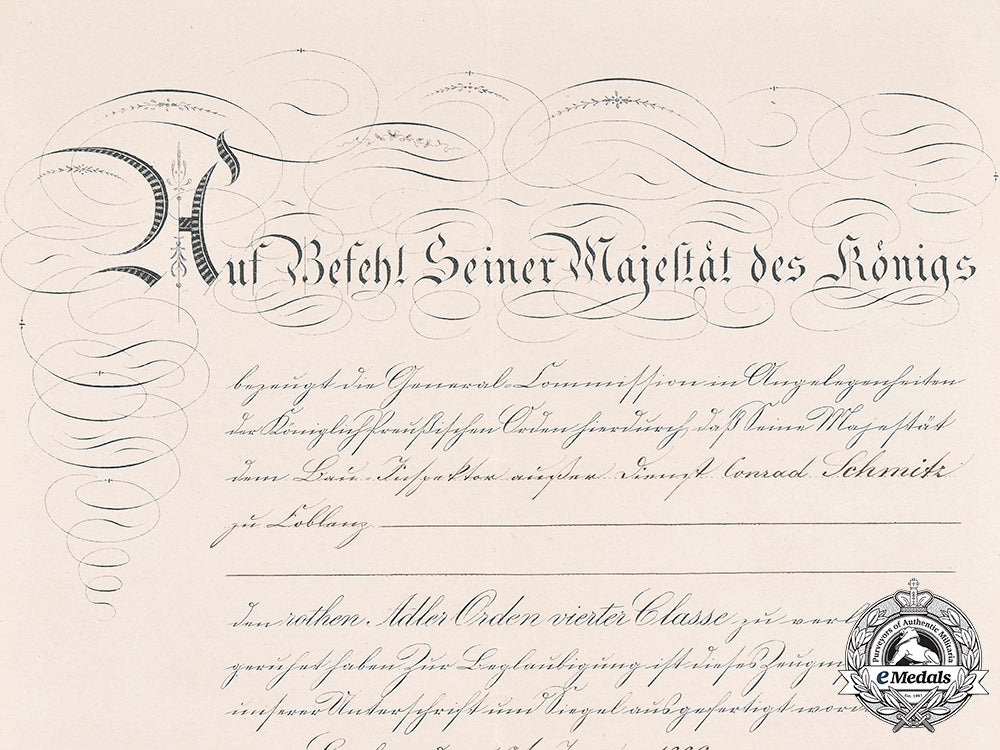 Auf Befehl Seiner Majestät des Königs
bezeugt die General-Commission in Angelegenheiten
der Königlich Preußischen Orden hierdurch, daß Seine Majestät
dem Bau-Inspektor außer Dienst Conrad Schmitz
zu Coblenz
den rothen Adler Orden vierter Classe zu
geruhet haben. Zur Beglaubigung ist dieses
unserer Unterschrift und Siegel ausgefertigt
Purveyors of Authentic Militaria
eMedals